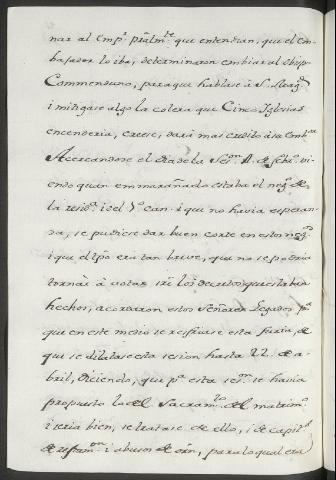 nar al Emp.r prãlm.te que entendian, que el Em
bajador lo iba, determinaron embiar al obispo
Commenduno, para que hablase à S. Mag.d
i mitigase algo la colera que Cinco Iglesias
encenderia, creese, dara mas credito à su
Acercandose el dia de la Ses.on de
endo quan enmarañado estaba el neg.o de
la resid.a i del 7.o can. i que no havia esperan
za, se pudiese dar buen corte en estos neg.os
i que el tpõ era tan breve, que no se podria
tornar à votar los decretos que estaban
hechos, acordaron estos Señores Legados p.a
que en este medio se resfriase esta furia, de
que se dilatase esta sesion hasta 22 de a-
bril, diciendo, que p.a esta ses.on se havia
propuesto lo del Sacram.to del matrim.o
i seria bien, se tratase de ello, i de capit.s
de reform.on i abusos de orñ, para lo qual era